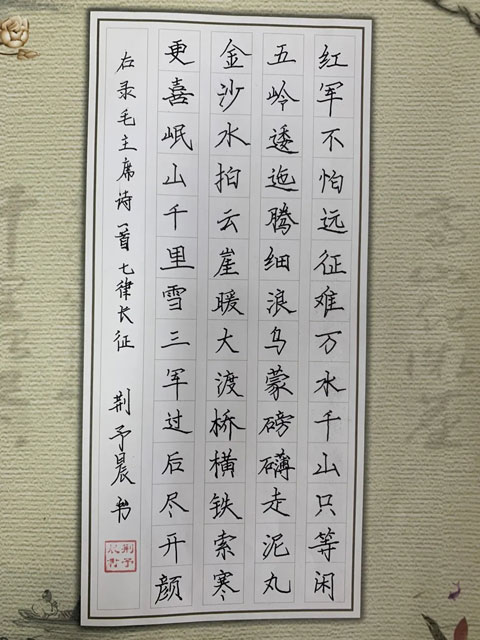 红军不怕远征难万水千山只等闲
五岭逶迤腾细浪乌蒙磅礴走泥丸
金沙水拍云崖暖大渡桥横铁索寒
更喜岷山千里雪三军过后尽开颜
右录毛主席诗一首七律长征 荆予晨书